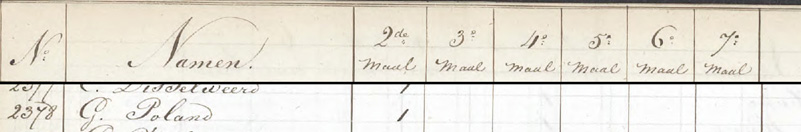 No. Namen. 2de. Maal 3e. Maal 4e. Maal 5e. Maal 6e. Maal 7e. Maal
2377 C. Disselweerd 1
2378 G. Poland 1